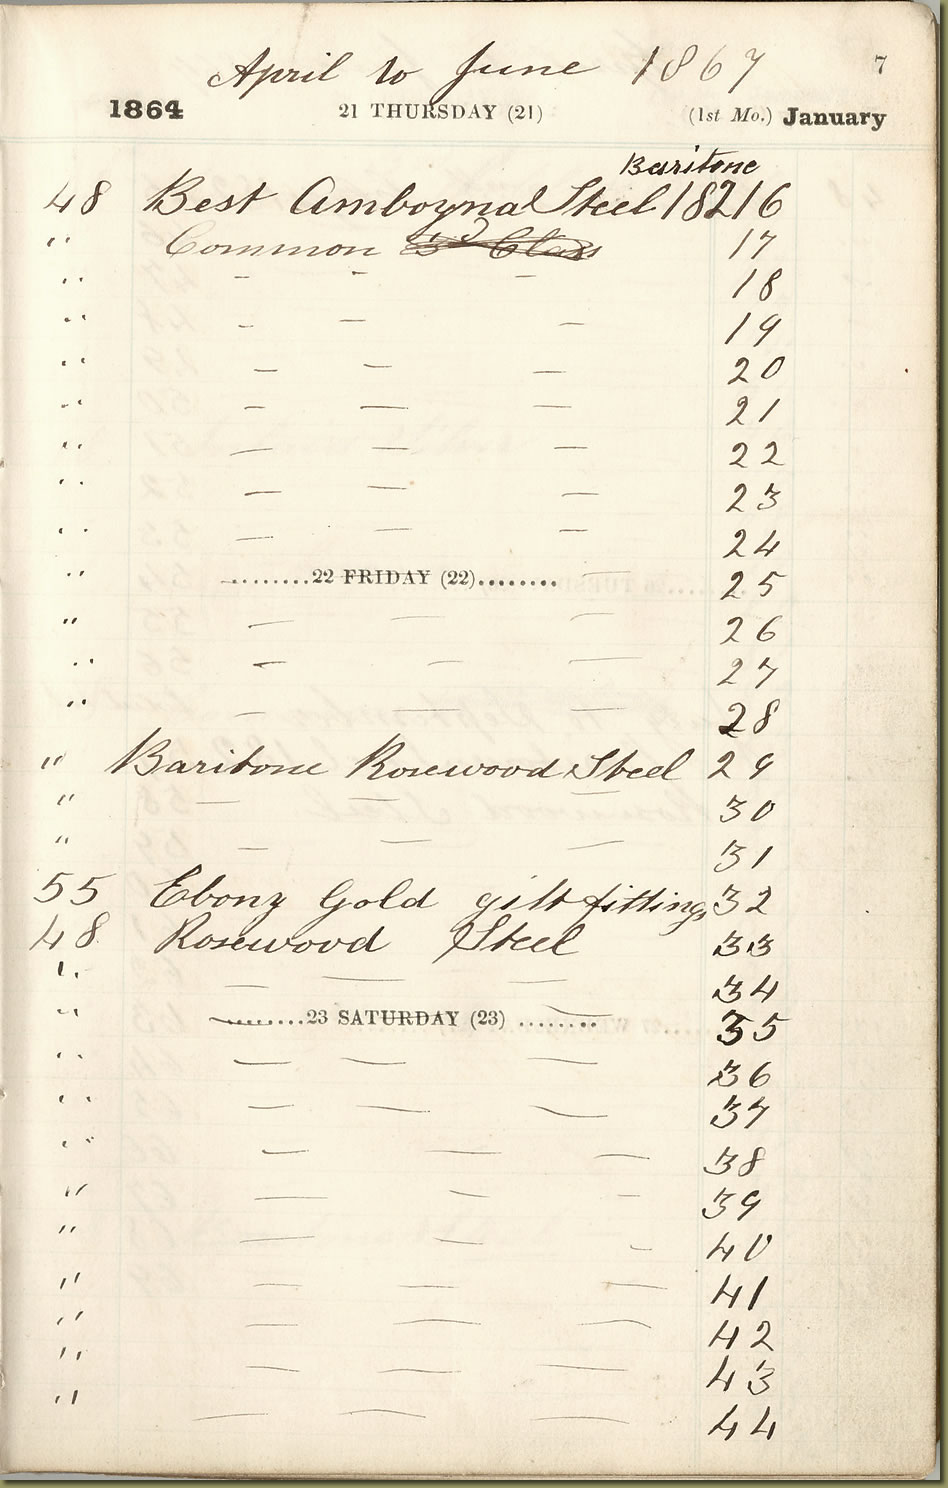 April to June 1867
7
1864 21 THURSDAY (21) (1st Mo.) January
Baritone
48 Best Amboyna Steel 18216
" Common 3d Class 17
" — — — 18
" — — — 19
" — — — 20
" — — — 21
" — — — 22
" — — — 23
" — — — 24
" ........22 FRIDAY (22)........ — 25
" — — — 26
" — — — 27
" — — — 28
" Baritone Rosewood Steel 29
" — — — 30
" — — — 31
55 Ebony Gold gilt fittings 32
48 Rosewood Steel 33
" — — — 34
" ........23 SATURDAY (23) ........ 35
" — — — 36
" — — — 37
" — — — 38
" — — — 39
" — — — 40
" — — — 41
" — — — 42
" — — — 43
" — — — 44